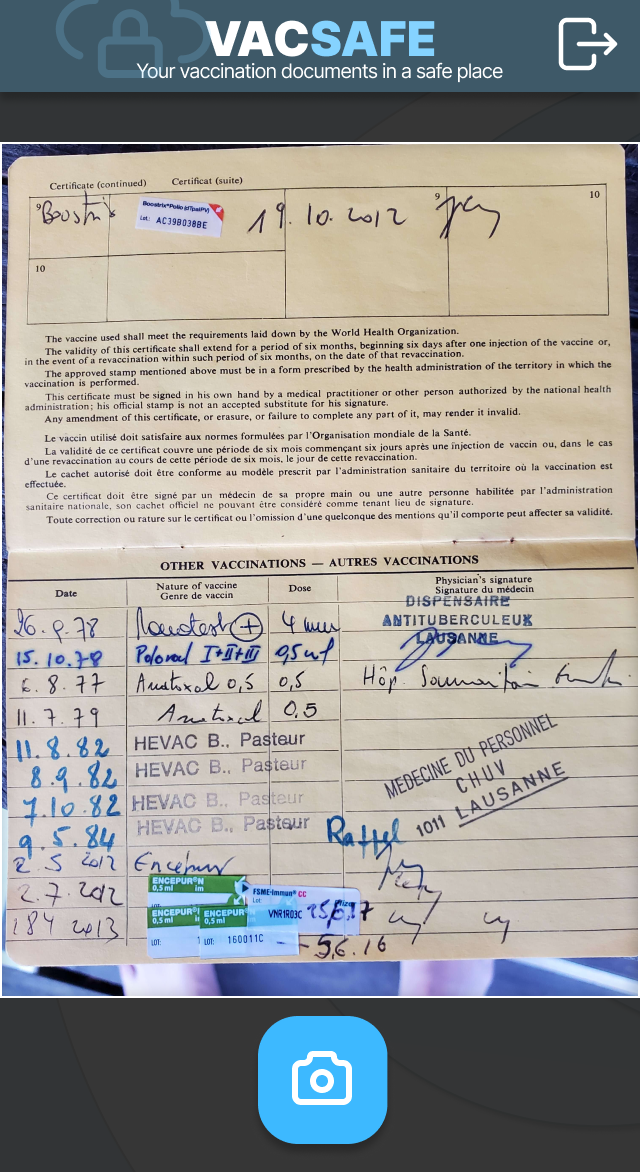 VACSAFE
Your vaccination documents in a safe place
Certificate (continued) Certificat (suite)
9 Boostrix
Boostrix® Polio (dTpaIPV)
Lot: AC39B038BE
19.10.2012
9
10
10
The vaccine used shall meet the requirements laid down by the World Health Organization.
The validity of this certificate shall extend for a period of six months, beginning six days after one injection of the vaccine or,
in the event of a revaccination within such period of six months, on the date of that revaccination.
The approved stamp mentioned above must be in a form prescribed by the health administration of the territory in which the
vaccination is performed.
This certificate must be signed in his own hand by a medical practitioner or other person authorized by the national health
administration; his official stamp is not an accepted substitute for his signature.
Any amendment of this certificate, or erasure, or failure to complete any part of it, may render it invalid.
Le vaccin utilisé doit satisfaire aux normes formulées par l'Organisation mondiale de la Santé.
La validité de ce certificat couvre une période de six mois commençant six jours après une injection de vaccin ou, dans le cas
d'une revaccination au cours de cette période de six mois, le jour de cette revaccination.
Le cachet autorisé doit être conforme au modèle prescrit par l'administration sanitaire du territoire où la vaccination est
effectuée.
Ce certificat doit être signé par un médecin de sa propre main ou une autre personne habilitée par l'administration
sanitaire nationale, son cachet officiel ne pouvant être considéré comme tenant lieu de signature.
Toute correction ou rature sur le certificat ou l'omission d'une quelconque des mentions qu'il comporte peut affecter sa validité.
OTHER VACCINATIONS — AUTRES VACCINATIONS
Date
Nature of vaccine
Genre de vaccin
Dose
Physician's signature
Signature du médecin
DISPENSAIRE
ANTITUBERCULEUX
LAUSANNE
26.9.78 + 4 mm
15.10.78 Poloral I+II+III
6.8.77 Anatoxal 0,5 0,5 Hôp.
11.7.79 Anatoxal 0.5
11.8.82 HEVAC B., Pasteur
8.9.82 HEVAC B., Pasteur
7.10.82 HEVAC B., Pasteur
9.5.84 HEVAC B., Pasteur Rappel
MEDECINE DU PERSONNEL
CHUV
1011 LAUSANNE
2.5 2012 Encepur
2.7.2012
18 4 2013
ENCEPUR® N
0,5 ml im
FSME-Immun® CC
Lot:
VNR1R03C
ENCEPUR
0,5 ml
ENCEPUR
0,5 ml
LOT:
LOT: 160011C
5.6.16